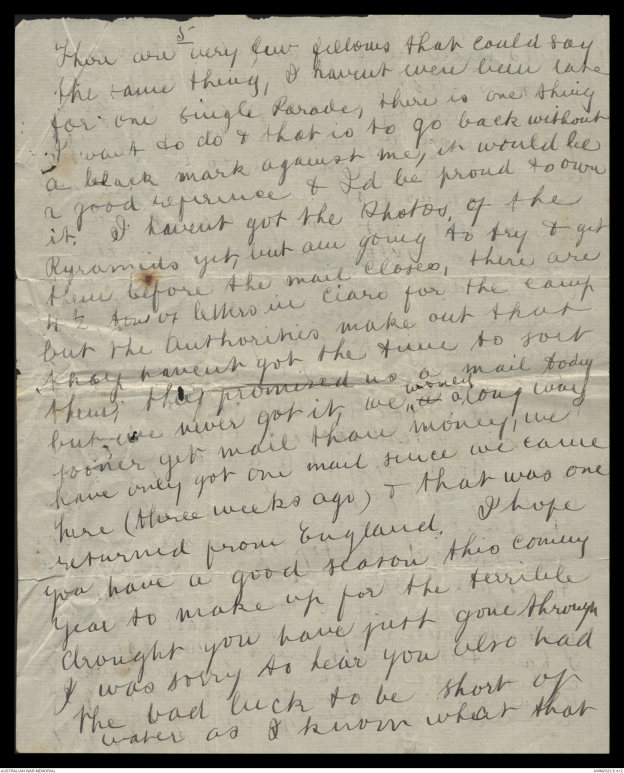 5
There are very few fellows that could say
the same thing, I havent even been late
for one single Parade, there is one thing
I want to do & that is to go back without
a black mark against me, it would be
a good reference & I'd be proud to own
it. I havent got the Photos of the
Pyramids yet, but am going to try & get
them before the mail closes, there are
4½ tons of letters in Ciaro for the camp
but the Authorities make out that
they havent got the time to sort
them, they promised us a mail today
but we never got it, we would a long way
sooner get mail than money, we
have only got one mail since we came
here (three weeks ago) & that was one
returned from England. I hope
you have a good season this coming
year to make up for the terrible
drought you have just gone through
I was sorry to hear you also had
the bad luck to be short of
water as I know what that
AUSTRALIAN WAR MEMORIAL